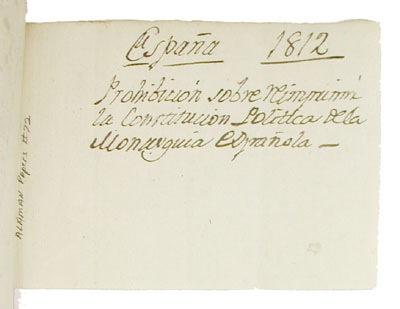 España 1812
Prohibición sobre reimprimir
la Constitución Política de la
Monarquia Española —
ALAMAN Papers #72